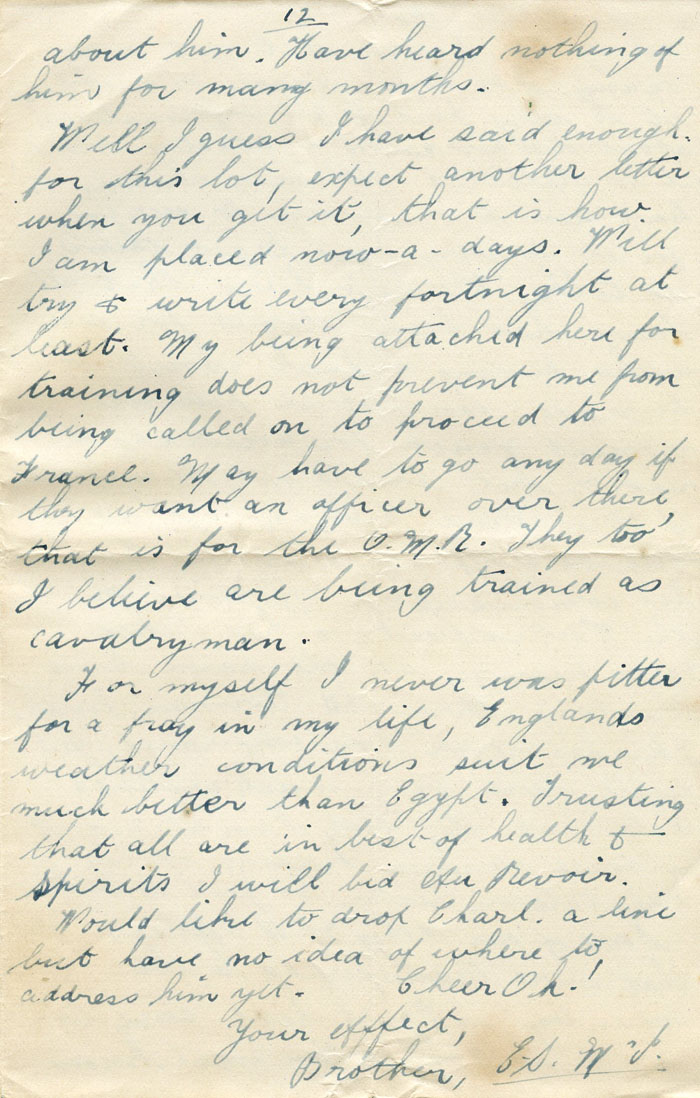 12
about him. Have heard nothing of
him for many months.
Well I guess I have said enough.
for this lot, expect another letter
when you get it, that is how
I am placed now-a-days. Will
try & write every fortnight at
least. My being attached here for
training does not prevent me from
being called on to proceed to
France. May have to go any day if
they want an officer over there,
that is for the O.M.R. They too
I believe are being trained as
cavalryman.
For myself I never was fitter
for a fray in my life, Englands
weather conditions suit me
much better than Egypt. Trusting
that all are in best of health &
spirits I will bid Au Revoir.
Would like to drop Charl. a line
but have no idea of where to,
address him yet. Cheer Oh.!
Your efffect,
Brother, E.S.